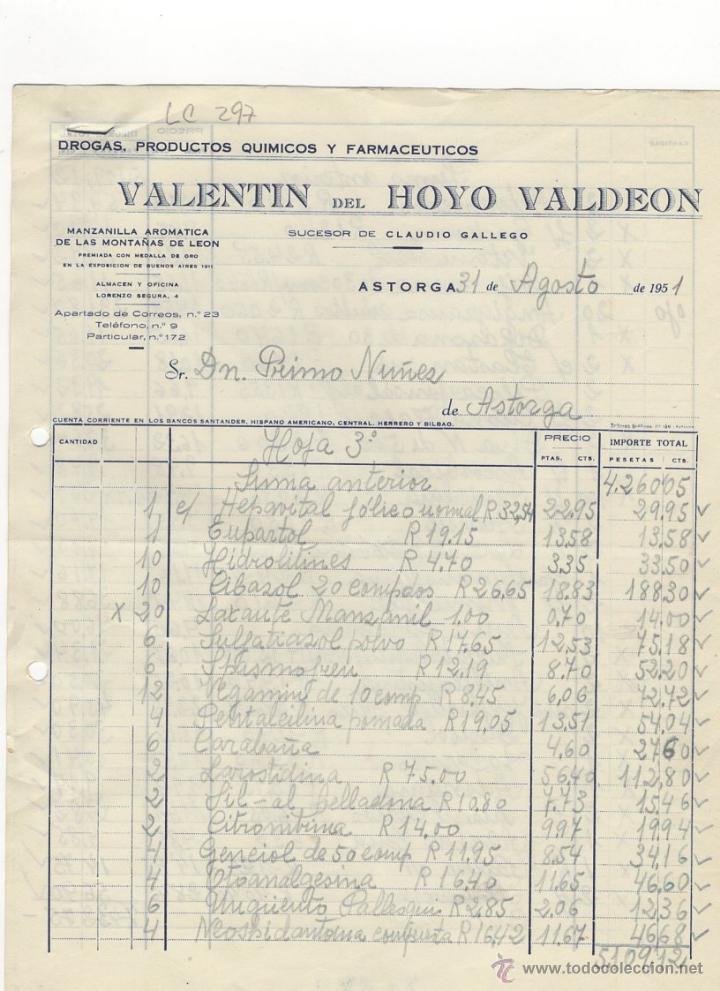 LC 297
DROGAS, PRODUCTOS QUIMICOS Y FARMACEUTICOS
VALENTIN DEL HOYO VALDEON
MANZANILLA AROMATICA
DE LAS MONTAÑAS DE LEON
PREMIADA CON MEDALLA DE ORO
EN LA EXPOSICION DE BUENOS AIRES 1911
ALMACEN Y OFICINA
LORENZO SEGURA, 4
Apartado de Correos, n.º 23
Teléfono, n.º 9
Particular, n.º 172
SUCESOR DE CLAUDIO GALLEGO
ASTORGA 31 de Agosto de 1951
Sr. Dn. Primo Nuñez
de Astorga
CUENTA CORRIENTE EN LOS BANCOS SANTANDER, HISPANO AMERICANO, CENTRAL, HERRERO Y BILBAO.
CANTIDAD Hoja 3ª PRECIO IMPORTE TOTAL
PTAS. CTS. PESETAS CTS.
Suma anterior 4.260 05
1 c/ Hepavital fólico normal R 32,54 22.95 29.95
1 Eupartol R 19.15 13,58 13,58
10 Hidrolitines R 4.70 3.35 33.50
10 Cibazol 20 compdos R 26,65 18.83 188.30
x 20 Laxante Manzanil 1.00 0.70 14.00
6 Sulfatiazol polvo R 17,65 12,53 75.18
6 R 12.19 8.70 52.20
12 Vegamint de 10 comp R 8.45 6,06 72,72
4 pomada R 19,05 13,51 54,04
6 Carabaña 4.60 27.60
2 Larostidina R 75.00 56.40 112,80
2 Sil-al belladona R 10.80 7.73 15.46
2 Citronitrina R 14,00 9.97 19.94
4 Genciol de 50 comp R 11.95 8.54 34,16
4 Otoanalgesina R 16.40 11.65 46,60
6 Ungüento R 2.85 2.06 12.36
4 compuesta R 16,42 11.67 46.68
5.109.12
www.todocoleccion.net